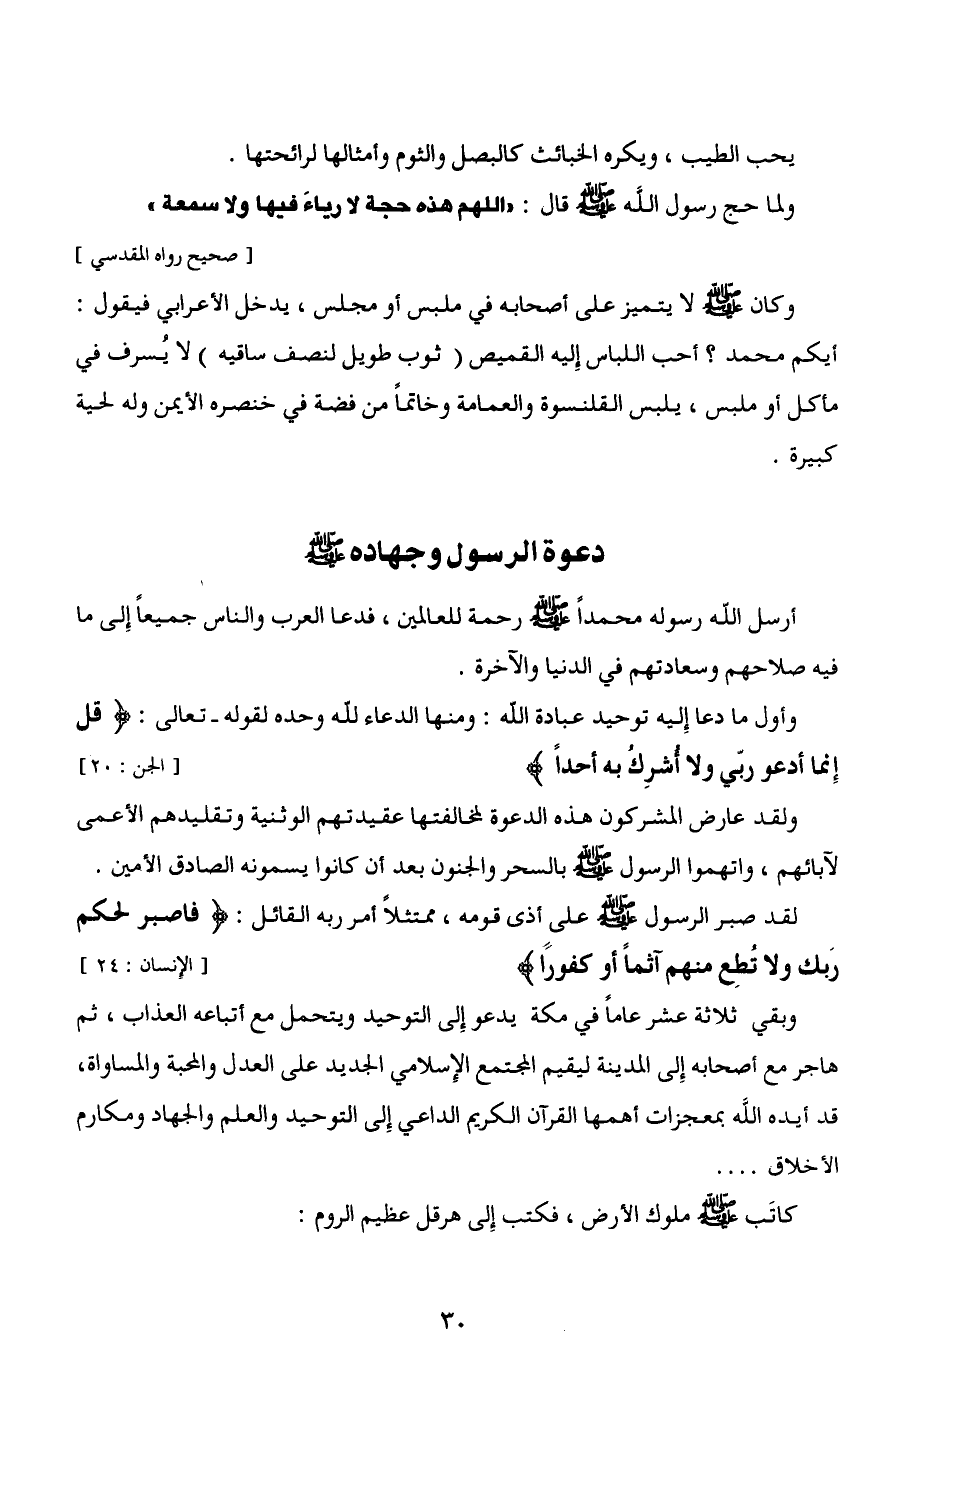 يحب الطيب ، ويكره الخبائث كالبصل والثوم وأمثالها لرائحتها .
ولما حج رسول اللَّه ﷺ قال : «اللهم هذه حجة لا رياءَ فيها ولا سمعة »
[ صحيح رواه المقدسي ]
وكان ﷺ لا يتميز على أصحابه في ملبس أو مجلس ، يدخل الأعرابي فيقول :
أيكم محمد ؟ أحب اللباس إليه القميص ( ثوب طويل لنصف ساقيه ) لا يُسرف في
مأكل أو ملبس ، يلبس القلنسوة والعمامة وخاتماً من فضة في خنصره الأيمن وله لحية
كبيرة .
دعوة الرسول وجهاده ﷺ
أرسل اللّه رسوله محمداً ﷺ رحمة للعالمين ، فدعا العرب والناس جميعاً إلى ما
فيه صلاحهم وسعادتهم في الدنيا والآخرة .
وأول ما دعا إليه توحيد عبادة اللّه : ومنها الدعاء للّه وحده لقوله ـ تعالى : ﴿ قل
إنما أدعو ربّي ولا أُشرِكُ به أحداً ﴾ [ الجن : ٢٠ ]
ولقد عارض المشركون هذه الدعوة لمخالفتها عقيدتهم الوثنية وتقليدهم الأعمى
لآبائهم ، واتهموا الرسول ﷺ بالسحر والجنون بعد أن كانوا يسمونه الصادق الأمين .
لقد صبر الرسول ﷺ على أذى قومه ، ممتثلاً أمر ربه القائل : ﴿ فاصبر لحكم
رَبك ولا تُطِع منهم آثماً أو كفورًا ﴾ [ الإنسان : ٢٤ ]
وبقي ثلاثة عشر عاماً في مكة يدعو إلى التوحيد ويتحمل مع أتباعه العذاب ، ثم
هاجر مع أصحابه إلى المدينة ليقيم المجتمع الإسلامي الجديد على العدل والمحبة والمساواة،
قد أيده اللَّه بمعجزات أهمها القرآن الكريم الداعي إلى التوحيد والعلم والجهاد ومكارم
الأخلاق ....
كاتَب ﷺ ملوك الأرض ، فكتب إلى هرقل عظيم الروم :
٣٠